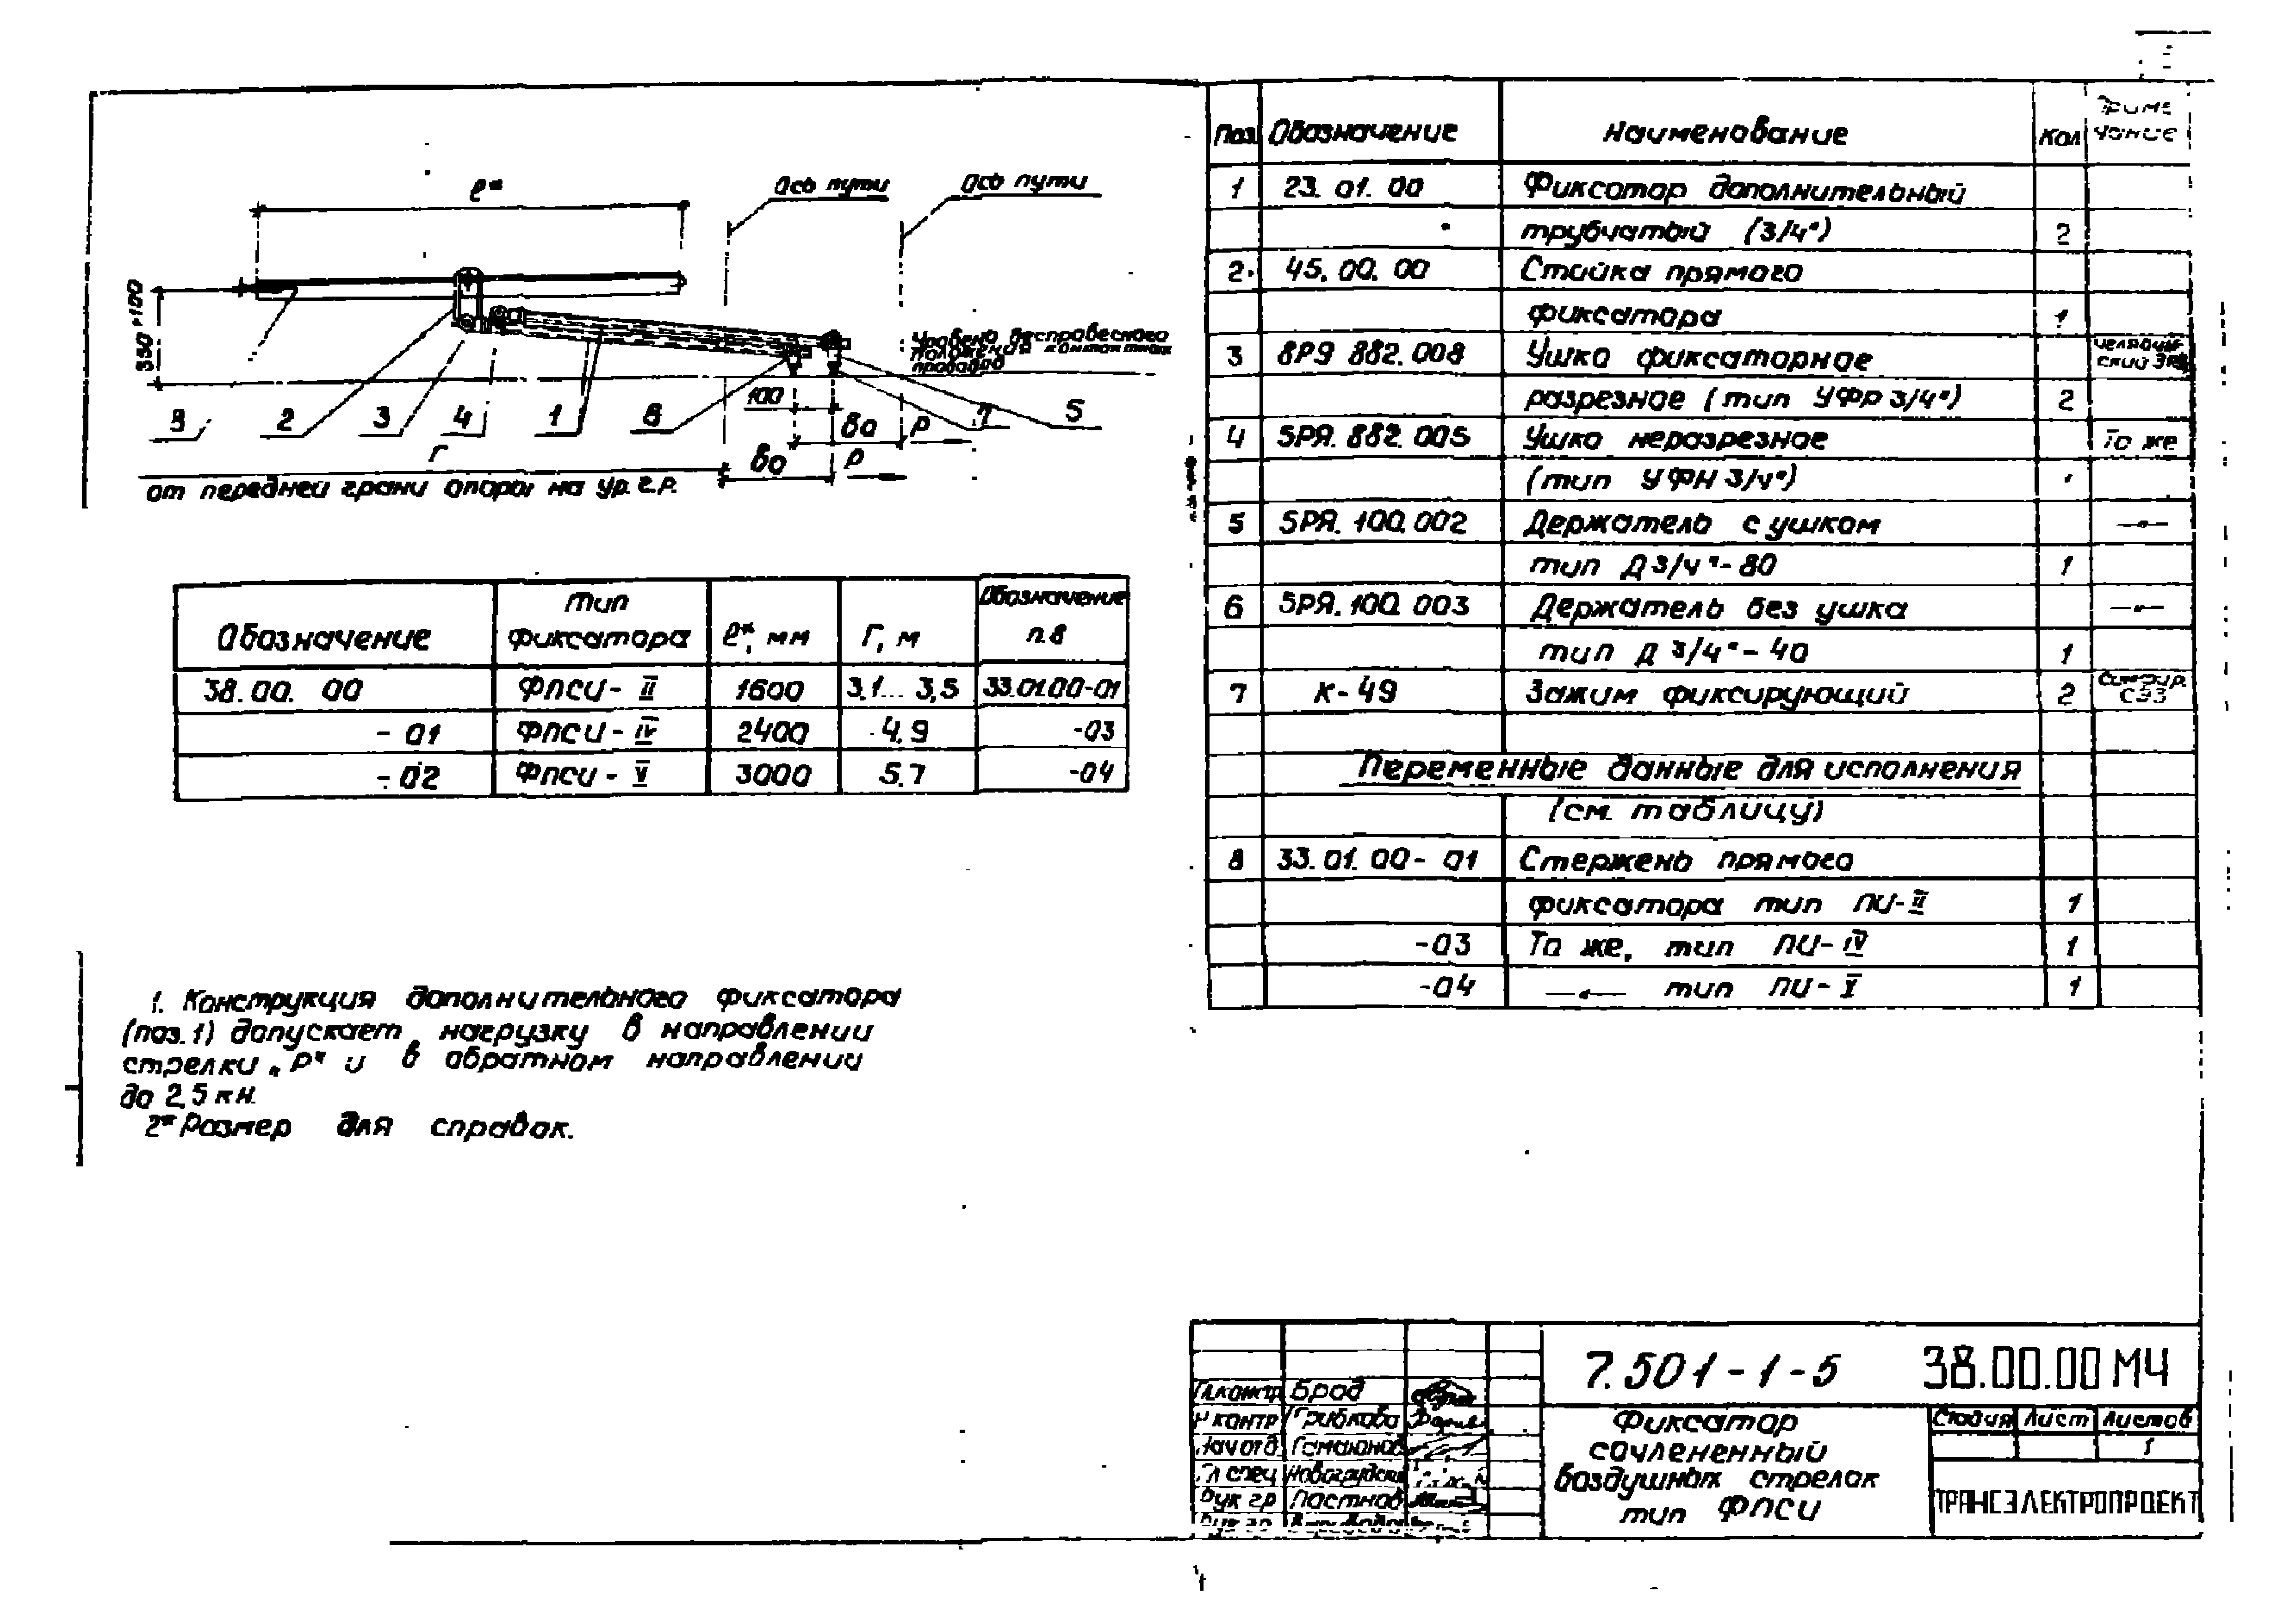 ℓ*
Ось пути
Ось пути
350 +100
Уровень беспровесного
положения контактных
проводов
8 2 3 4 1 6 7 5
100
80 P
Г
80 P
от передней грани опоры на ур. г.р.
Обозначение | Тип фиксатора | ℓ*, мм | Г, м | Обозначение п.8
38.00. 00 | ФПСИ-II | 1600 | 3,1... 3,5 | 33.01.00-01
-01 | ФПСИ-IV | 2400 | 4,9 | -03
-02 | ФПСИ-V | 3000 | 5,7 | -04
1. Конструкция дополнительного фиксатора
(поз.1) допускает нагрузку в направлении
стрелки „P" и в обратном направлении
до 2,5 кН.
2* Размер для справок.
Поз. | Обозначение | Наименование | Кол | Приме чание
1 | 23. 01. 00 | Фиксатор дополнительный
трубчатый (3/4") | 2
2 | 45. 00. 00 | Стойка прямого
фиксатора | 1
3 | 8РЯ 882. 008 | Ушко фиксаторное
разрезное (тип УФР 3/4") | 2
4 | 5РЯ. 882. 005 | Ушко неразрезное | То же
(тип УФН 3/4")
5 | 5РЯ. 100. 002 | Держатель с ушком | —"—
тип Д 3/4"-80 | 1
6 | 5РЯ. 100. 003 | Держатель без ушка | —"—
тип Д 3/4"-40 | 1
7 | К-49 | Зажим фиксирующий | 2 | СЭЗ
Переменные данные для исполнения
(см. таблицу)
8 | 33. 01. 00- 01 | Стержень прямого
фиксатора тип ПИ-II | 1
-03 | То же, тип ПИ-IV | 1
-04 | —"— тип ПИ-V | 1
7.501-1-5 38.00.00 МЧ
Гл.констр Брод
Н контр Грибкова
Нач отд Гамаюнов
Гл спец Новогрудский
Рук гр Ластнов
Рук гр
Фиксатор
сочлененный
воздушных стрелок
тип ФПСИ
Стадия | Лист | Листов
1
ТРАНСЭЛЕКТРОПРОЕКТ